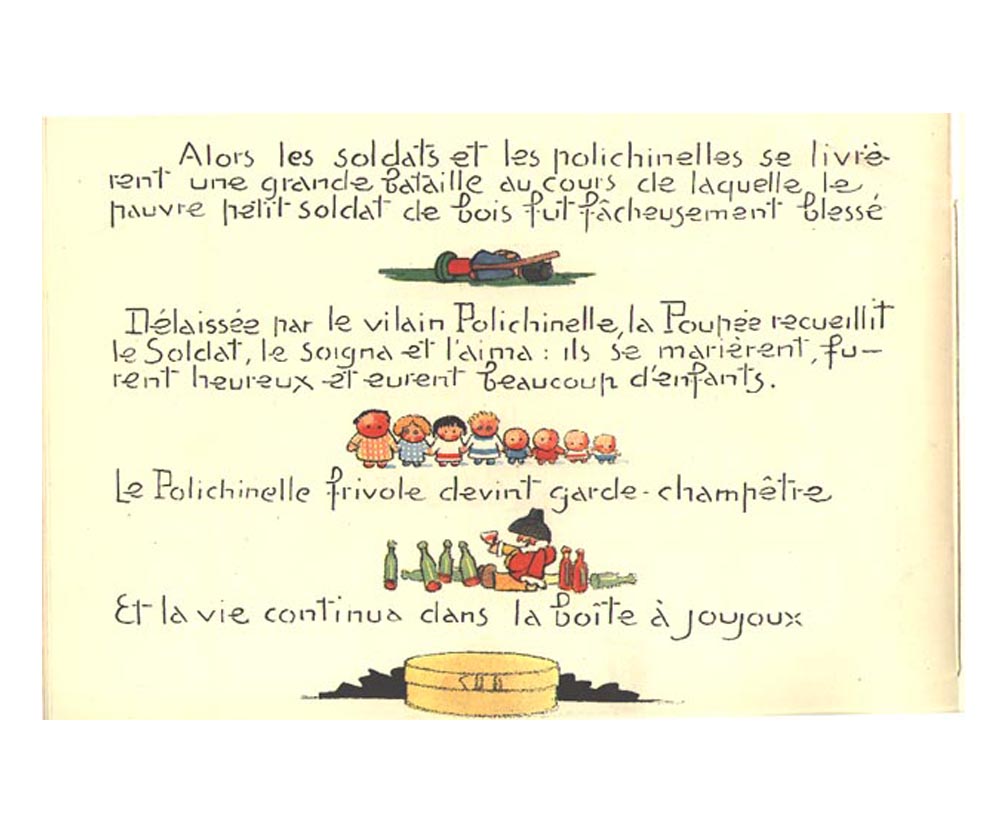 Alors les soldats et les polichinelles se livrè-
rent une grande bataille au cours de laquelle le
pauvre petit soldat de bois fut fâcheusement blessé
Délaissée par le vilain Polichinelle, la Poupée recueillit
le Soldat, le soigna et l'aima : ils se marièrent, fu-
rent heureux et eurent beaucoup d'enfants.
Le Polichinelle frivole devint garde-champêtre
Et la vie continua dans la boîte à joujoux